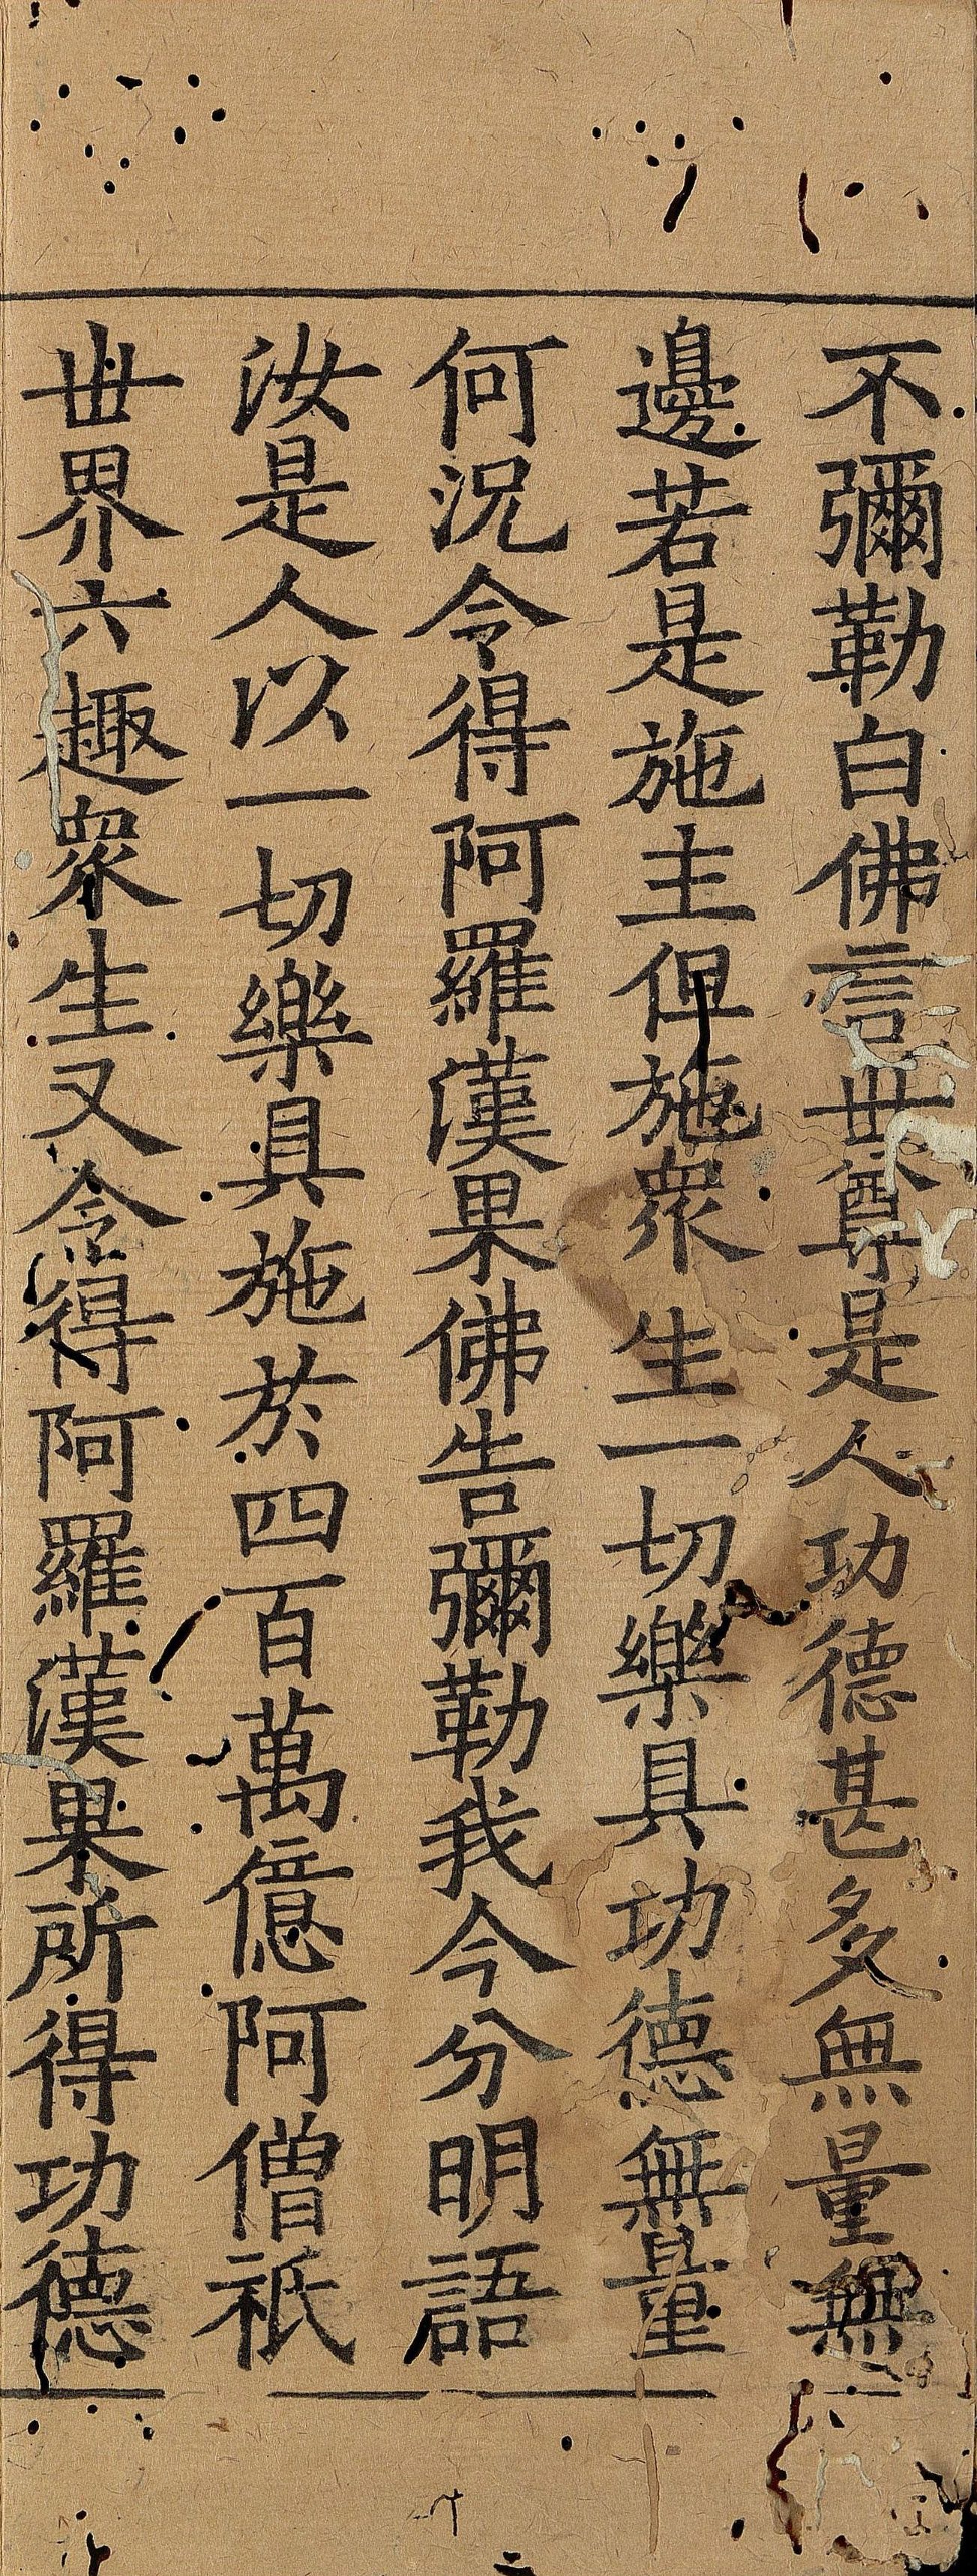 不彌勒白佛言世尊是人功德甚多無量無
邊若是施主但施衆生一切樂具功德無量
何況令得阿羅漢果佛告彌勒我今分明語
汝是人以一切樂具施於四百萬億阿僧祇
世界六趣衆生又令得阿羅漢果所得功德